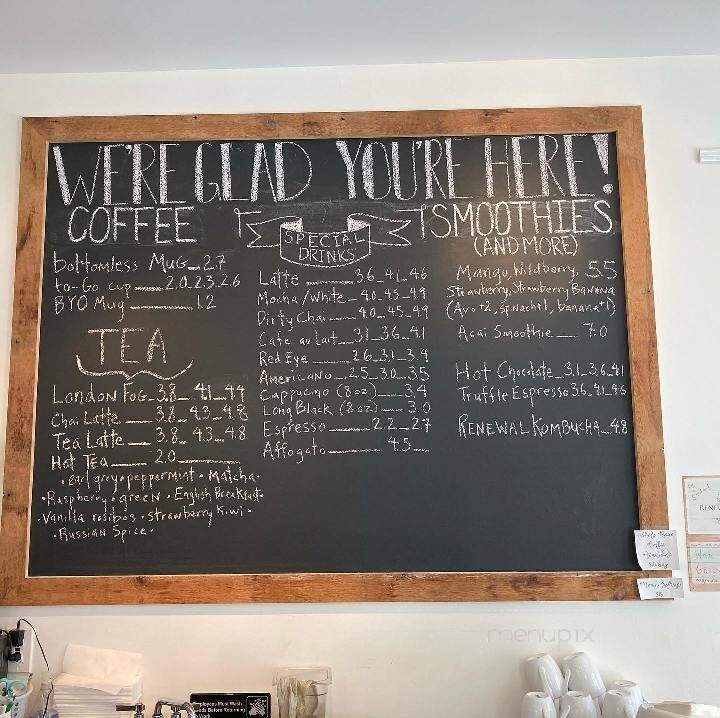 WE'RE GLAD YOU'RE HERE!
COFFEE
bottomless MUG_2.7
to-Go cup_2.0_2.3_2.6
BYO Mug_1.2
TEA
LONDON FOG_3.8_4.1_4.4
Chai Latte_3.8_4.3_4.8
Tea Latte_3.8_4.3_4.8
Hot Tea_2.0
• Earl grey • peppermint • Matcha •
• Raspberry • green • English Breakfast •
• Vanilla rooibos • strawberry Kiwi •
• Russian Spice •
SPECIAL
DRINKS
Latte_3.6_4.1_4.6
Mocha/White_4.0_4.5_4.9
Dirty Chai_4.0_4.5_4.9
Cafe au Lait_3.1_3.6_4.1
Red Eye_2.6_3.1_3.4
Americano_2.5_3.0_3.5
Cappucino (8oz)_3.4
Long Black (8oz)_3.0
Espresso_2.2_2.7
Affogato_4.5_
SMOOTHIES
(AND MORE)
Mango, Wildberry, 5.5
Strawberry, Strawberry Banana
(Avo+2, Spinach+1, banana+1)
Acai Smoothie_7.0
Hot Chocolate_3.1_3.6_4.1
Truffle Espresso 3.6_4.1_4.6
RENEWAL KOMBUCHA_4.8
menupix
Employees Must Wash
Hands Before Returning
to Work